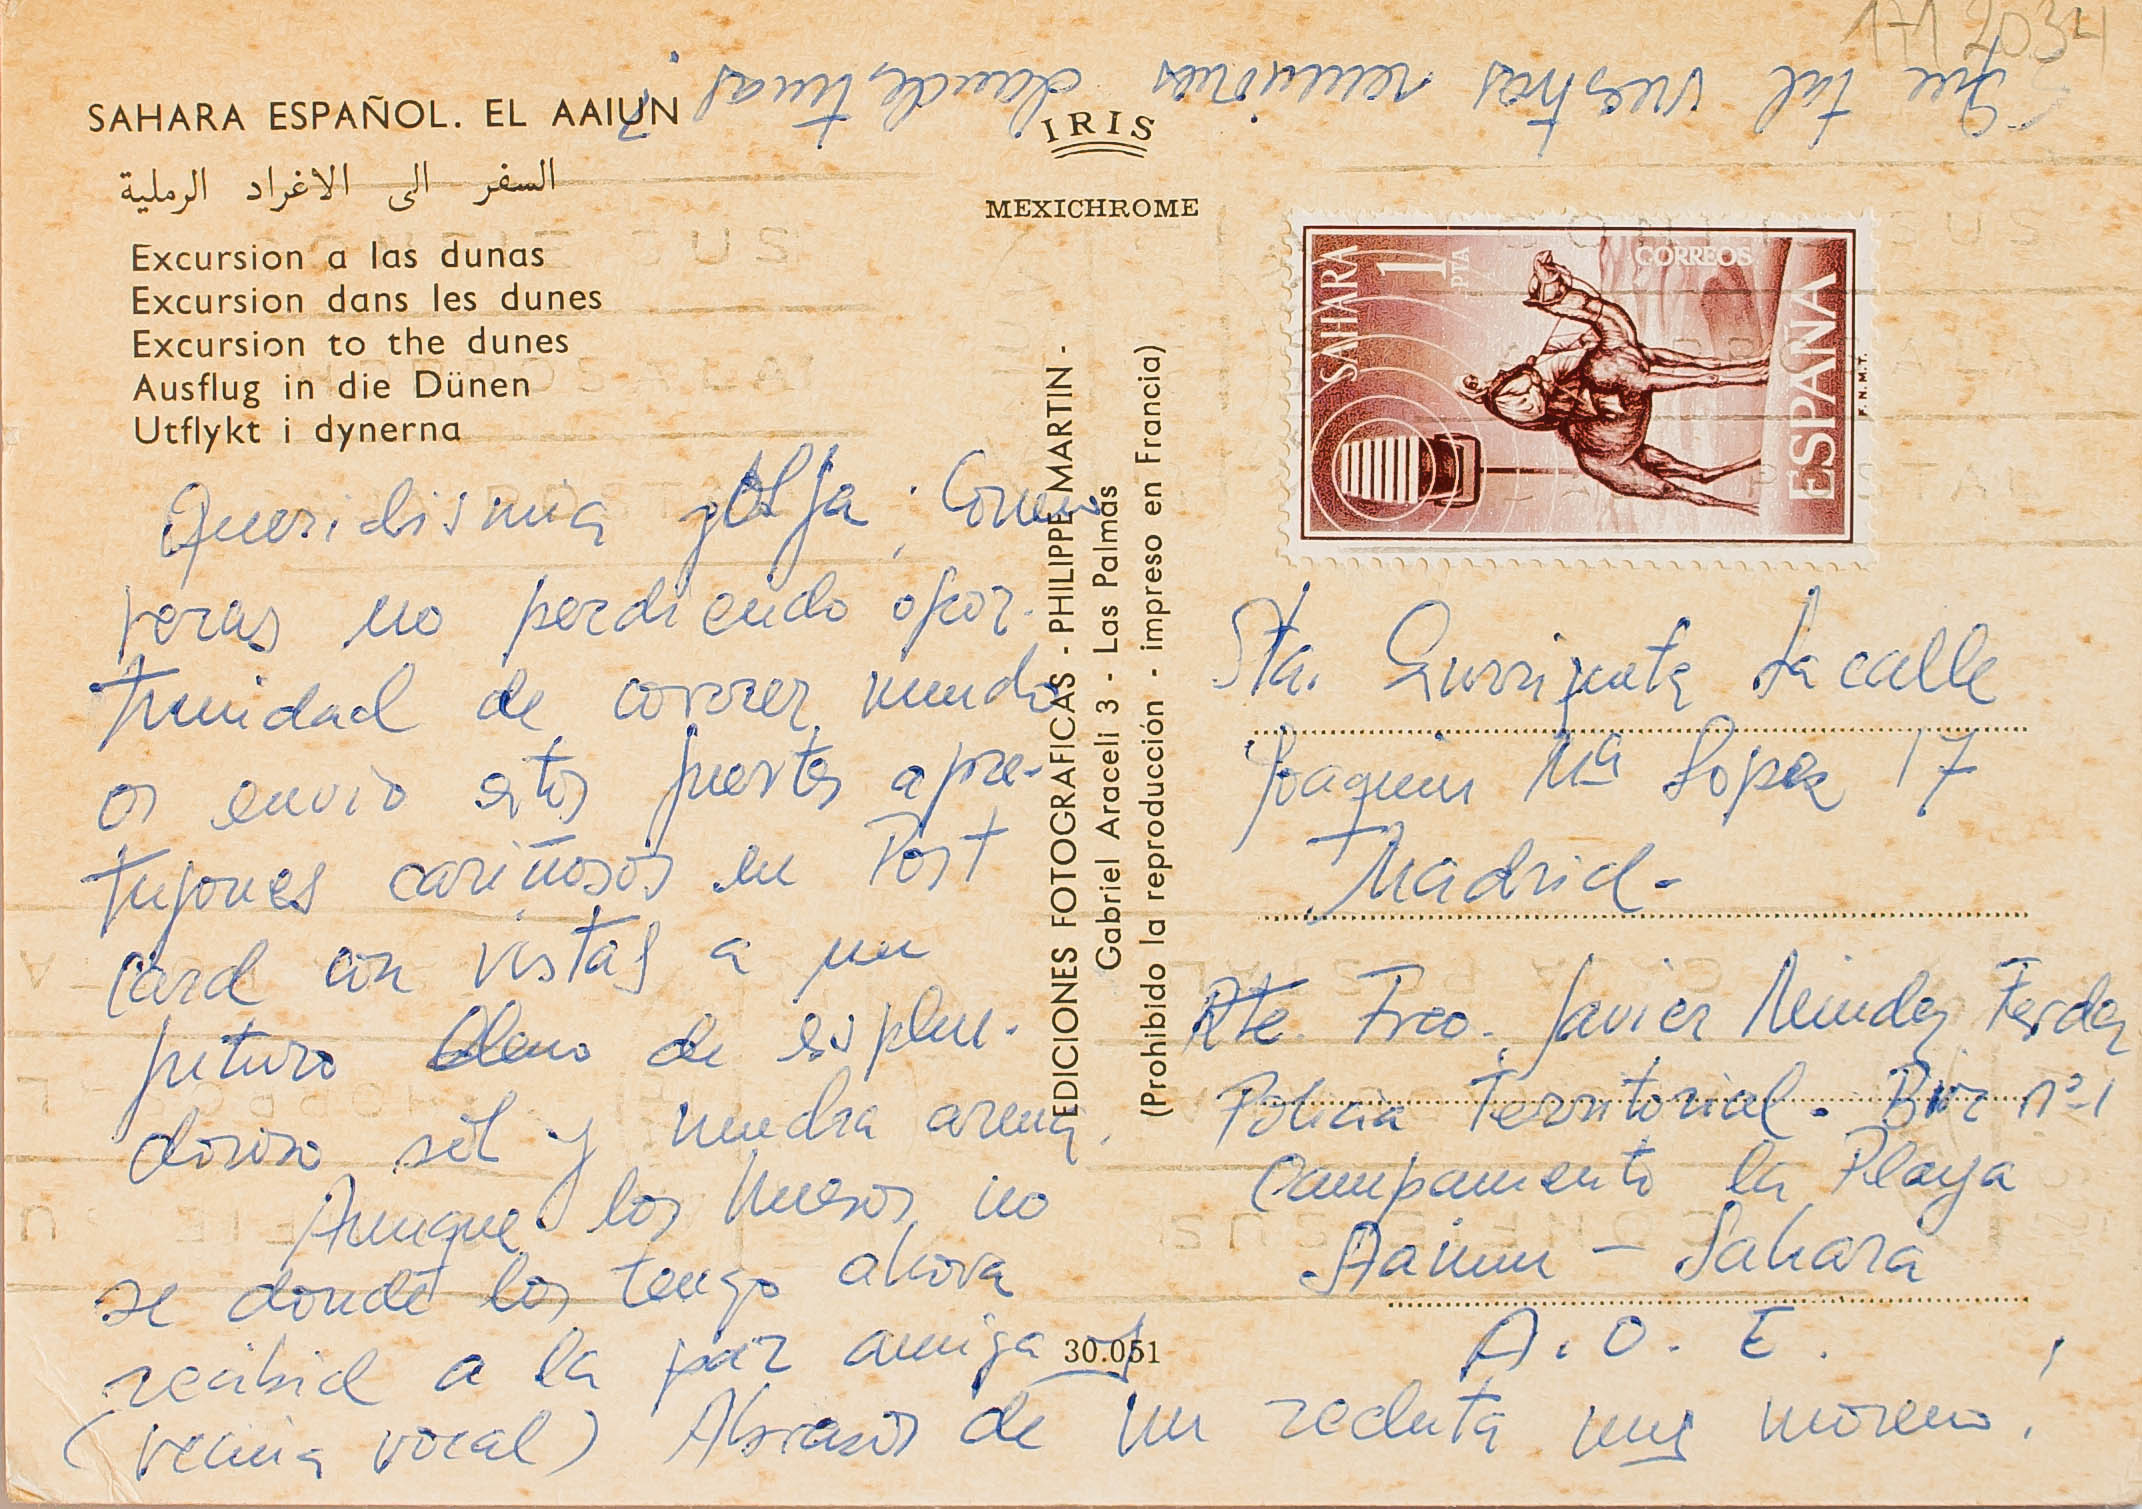 1712034
Que tal vuestras reuniones clandestinas?
SAHARA ESPAÑOL. EL AAIUN
السفر الى الاغراد الرملية
Excursion a las dunas
Excursion dans les dunes
Excursion to the dunes
Ausflug in die Dünen
Utflykt i dynerna
IRIS
MEXICHROME
EDICIONES FOTOGRAFICAS - PHILIPPE MARTIN -
Gabriel Araceli 3 - Las Palmas
(Prohibido la reproducción - impreso en Francia)
SAHARA
1
PTA
CORREOS
ESPAÑA
F.N.M.T.
Queridisima : Como
veras no perdiendo opor-
tunidad de correr mundo
os envio estos fuertes apre-
tujones cariñosos en Post
Card con vistas a un
futuro lleno de esplen-
doroso sol y arena,
Aunque los huesos no
se donde los tengo ahora
recibid a la par amiga y
(vecina vocal) Abrazos de un recluta muy moreno.
Sta. Lacalle
Joaquin Mª Lopez 17
Madrid-
Rte. Frco. Javier Ferdez
Policia Territorial. nº 1
Campamento la Playa
Aaiun - Sahara
A.O.E.
30.051